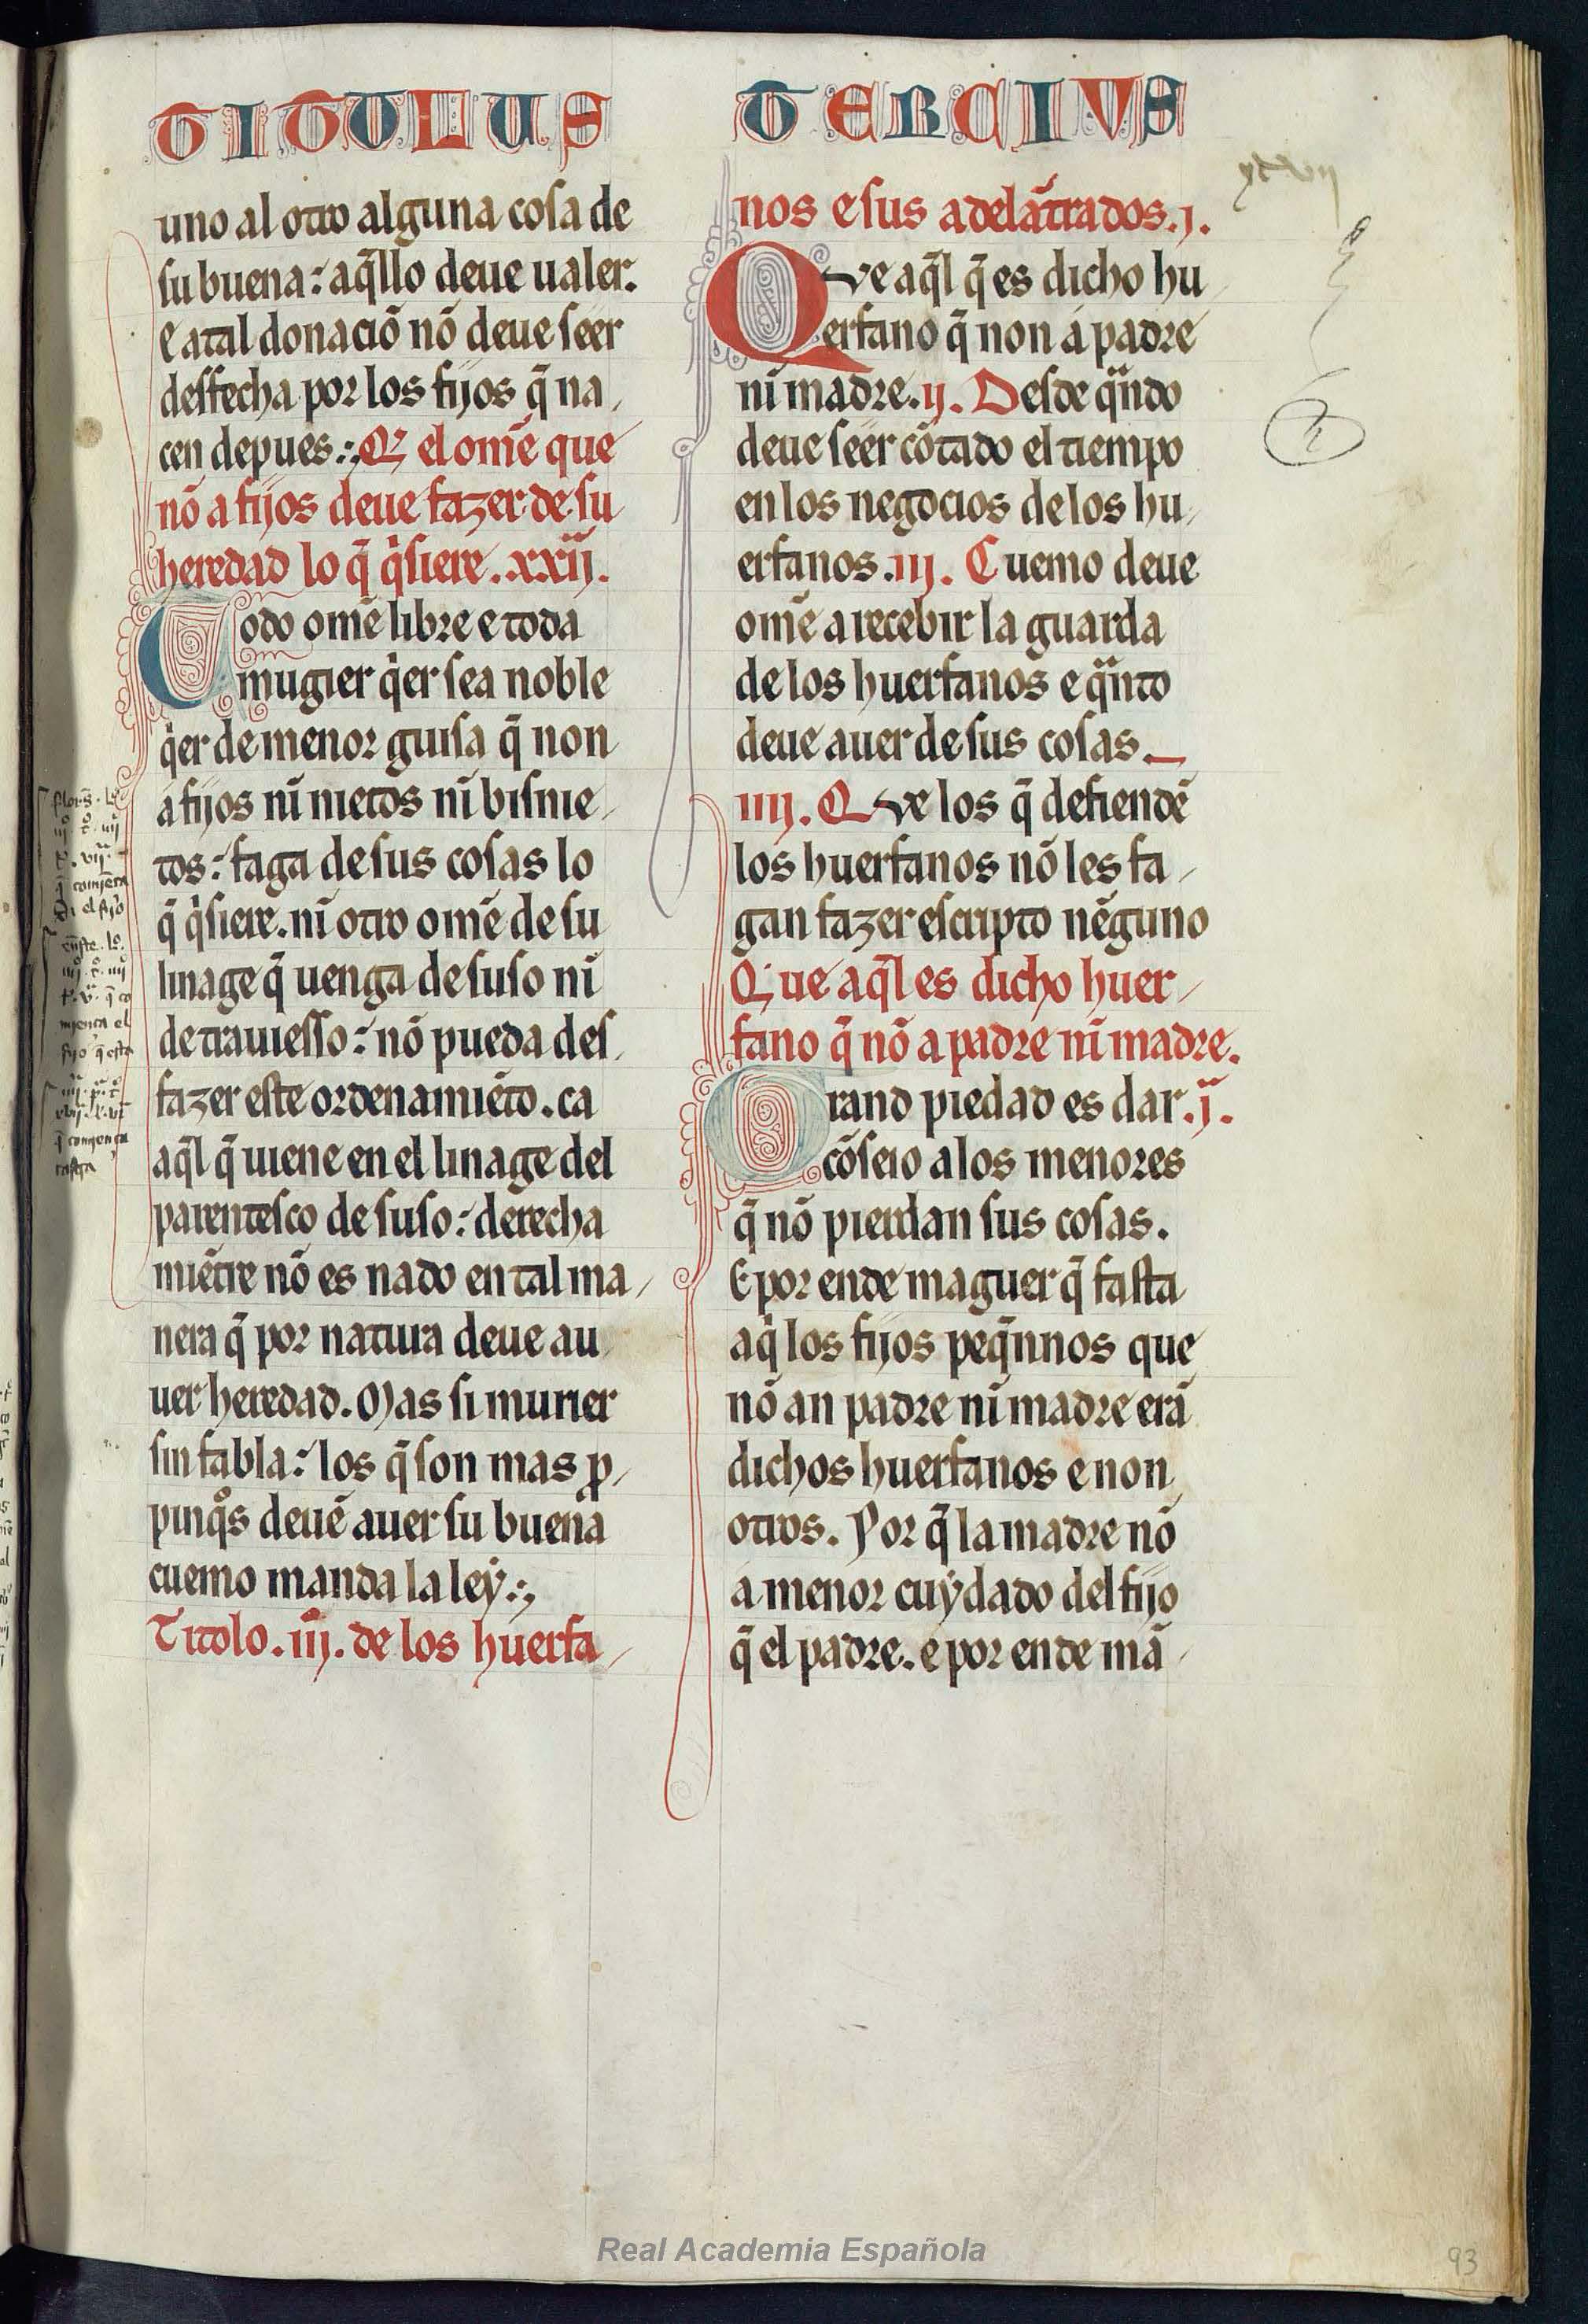 TITULUS
uno al otro alguna cosa de
su buena: aq̃llo deue ualer.
E atal donaciõ nõ deue seer
desfecha por los fijos q̃ na
cen depues: Q̃ el omẽ que
nõ a fijos deue fazer de su
heredad lo q̃ q̇siere. xxij.
Todo omẽ libre e toda
mugier q̇er sea noble
q̇er de menor guisa q̃ non
á fijos nĩ nietos nĩ bisnie
tos: faga de sus cosas lo
q̃ q̇siere. nĩ otro omẽ de su
linage q̃ uenga de suso nĩ
de trauiesso: nõ pueda des
fazer este ordenamiẽto. ca
aq̃l q̃ uiene en el linage del
parentesco de suso: derecha
miẽtre nõ es nado en tal ma
nera q̃ por natura deue au
uer heredad. Mas si murier
sin fabla: los q̃ son mas ꝓ
pinq̊s deuẽ auer su buena
cuemo manda la leẏ:
Titolo. iij. de los huerfa
TERCIVS
nos e sus adelãtrados. j.
Que aq̃l q̃ es dicho hu
erfano q̃ non á padre
nĩ madre. ij. Desde qũndo
deue seer cõtado el tiempo
en los negocios de los hu
erfanos. iij. Cuemo deue
omẽ a recebir la guarda
de los huerfanos e qũnto
deue auer de sus cosas.
iiij. Que los q̃ defiendẽ
los huerfanos nõ les fa
gan fazer escripto nẽguno
Que aq̃l es dicho huer
fano q̃ nõ a padre nĩ madre.
Grand piedad es dar .j.
cõseio a los menores
q̃ nõ pierdan sus cosas.
E por ende maguer q̃ fasta
aq̇ los fijos peq̃nnos que
nõ an padre nĩ madre erã
dichos huerfanos e non
otros. Por q̃ la madre nõ
a menor cuẏdado del fijo
q̃ el padre. e por ende mã
Real Academia Española
93